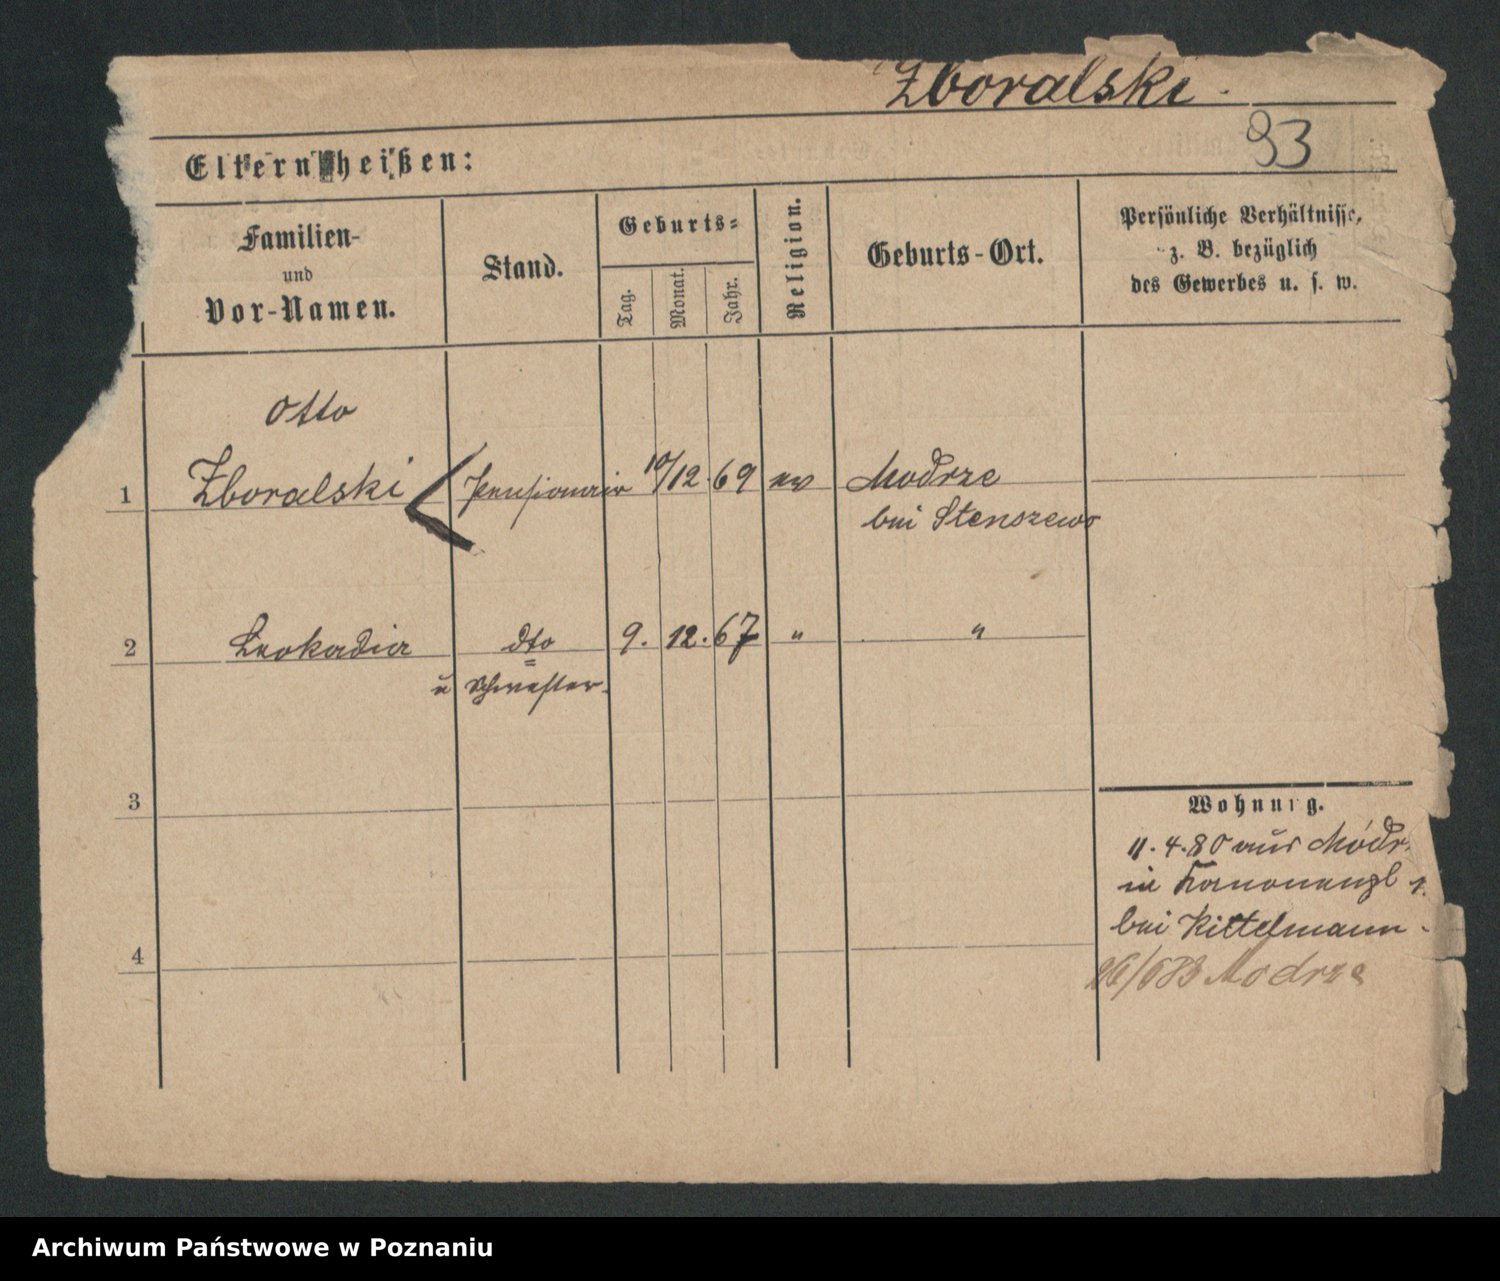 Zboralski.
93
Eltern heißen:
Familien-
und
Vor-Namen.
Stand.
Geburts-
Tag.
Monat.
Jahr.
Religion.
Geburts-Ort.
Persönliche Verhältnisse,
z. B. bezüglich
des Gewerbes u. s. w.
Otto
1 Zboralski Pensionair 10/12.69 ev Modrze
bei Stenszewo
2 Leokadia dto 9. 12. 67 " "
u Schwester.
3
4
Wohnung.
11.4.80 aus Modr.
in Kanonenpl 1.
bei Kittelmann
26/6 83 Modrze
Archiwum Państwowe w Poznaniu